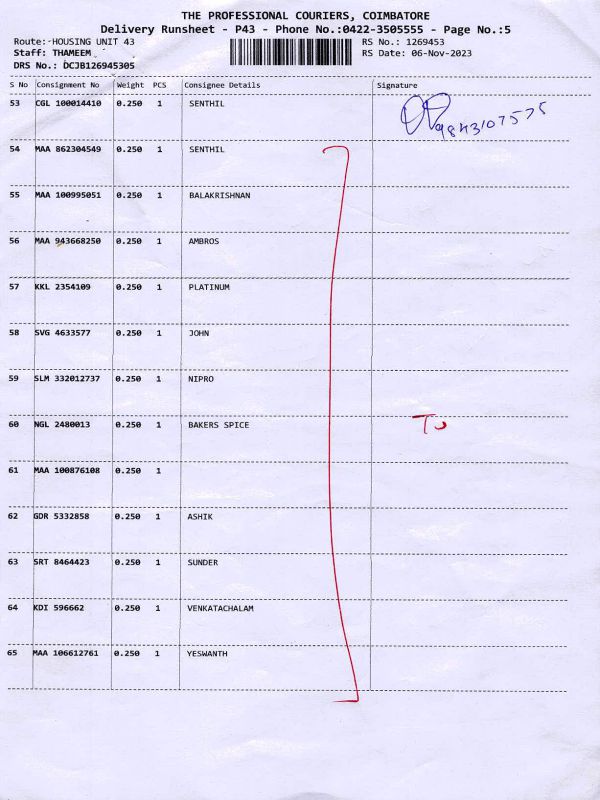 THE PROFESSIONAL COURIERS, COIMBATORE
Delivery Runsheet - P43 - Phone No.:0422-3505555 - Page No.:5
Route:-HOUSING UNIT 43 RS No.: 1269453
Staff: THAMEEM RS Date: 06-Nov-2023
DRS No.: DCJB126945305
S No Consignment No Weight PCS Consignee Details Signature
53 CGL 100014410 0.250 1 SENTHIL
9843107575
54 MAA 862304549 0.250 1 SENTHIL
55 MAA 100995051 0.250 1 BALAKRISHNAN
56 MAA 943668250 0.250 1 AMBROS
57 KKL 2354109 0.250 1 PLATINUM
58 SVG 4633577 0.250 1 JOHN
59 SLM 332012737 0.250 1 NIPRO
60 NGL 2480013 0.250 1 BAKERS SPICE
61 MAA 100876108 0.250 1
62 GDR 5332858 0.250 1 ASHIK
63 SRT 8464423 0.250 1 SUNDER
64 KDI 596662 0.250 1 VENKATACHALAM
65 MAA 106612761 0.250 1 YESWANTH